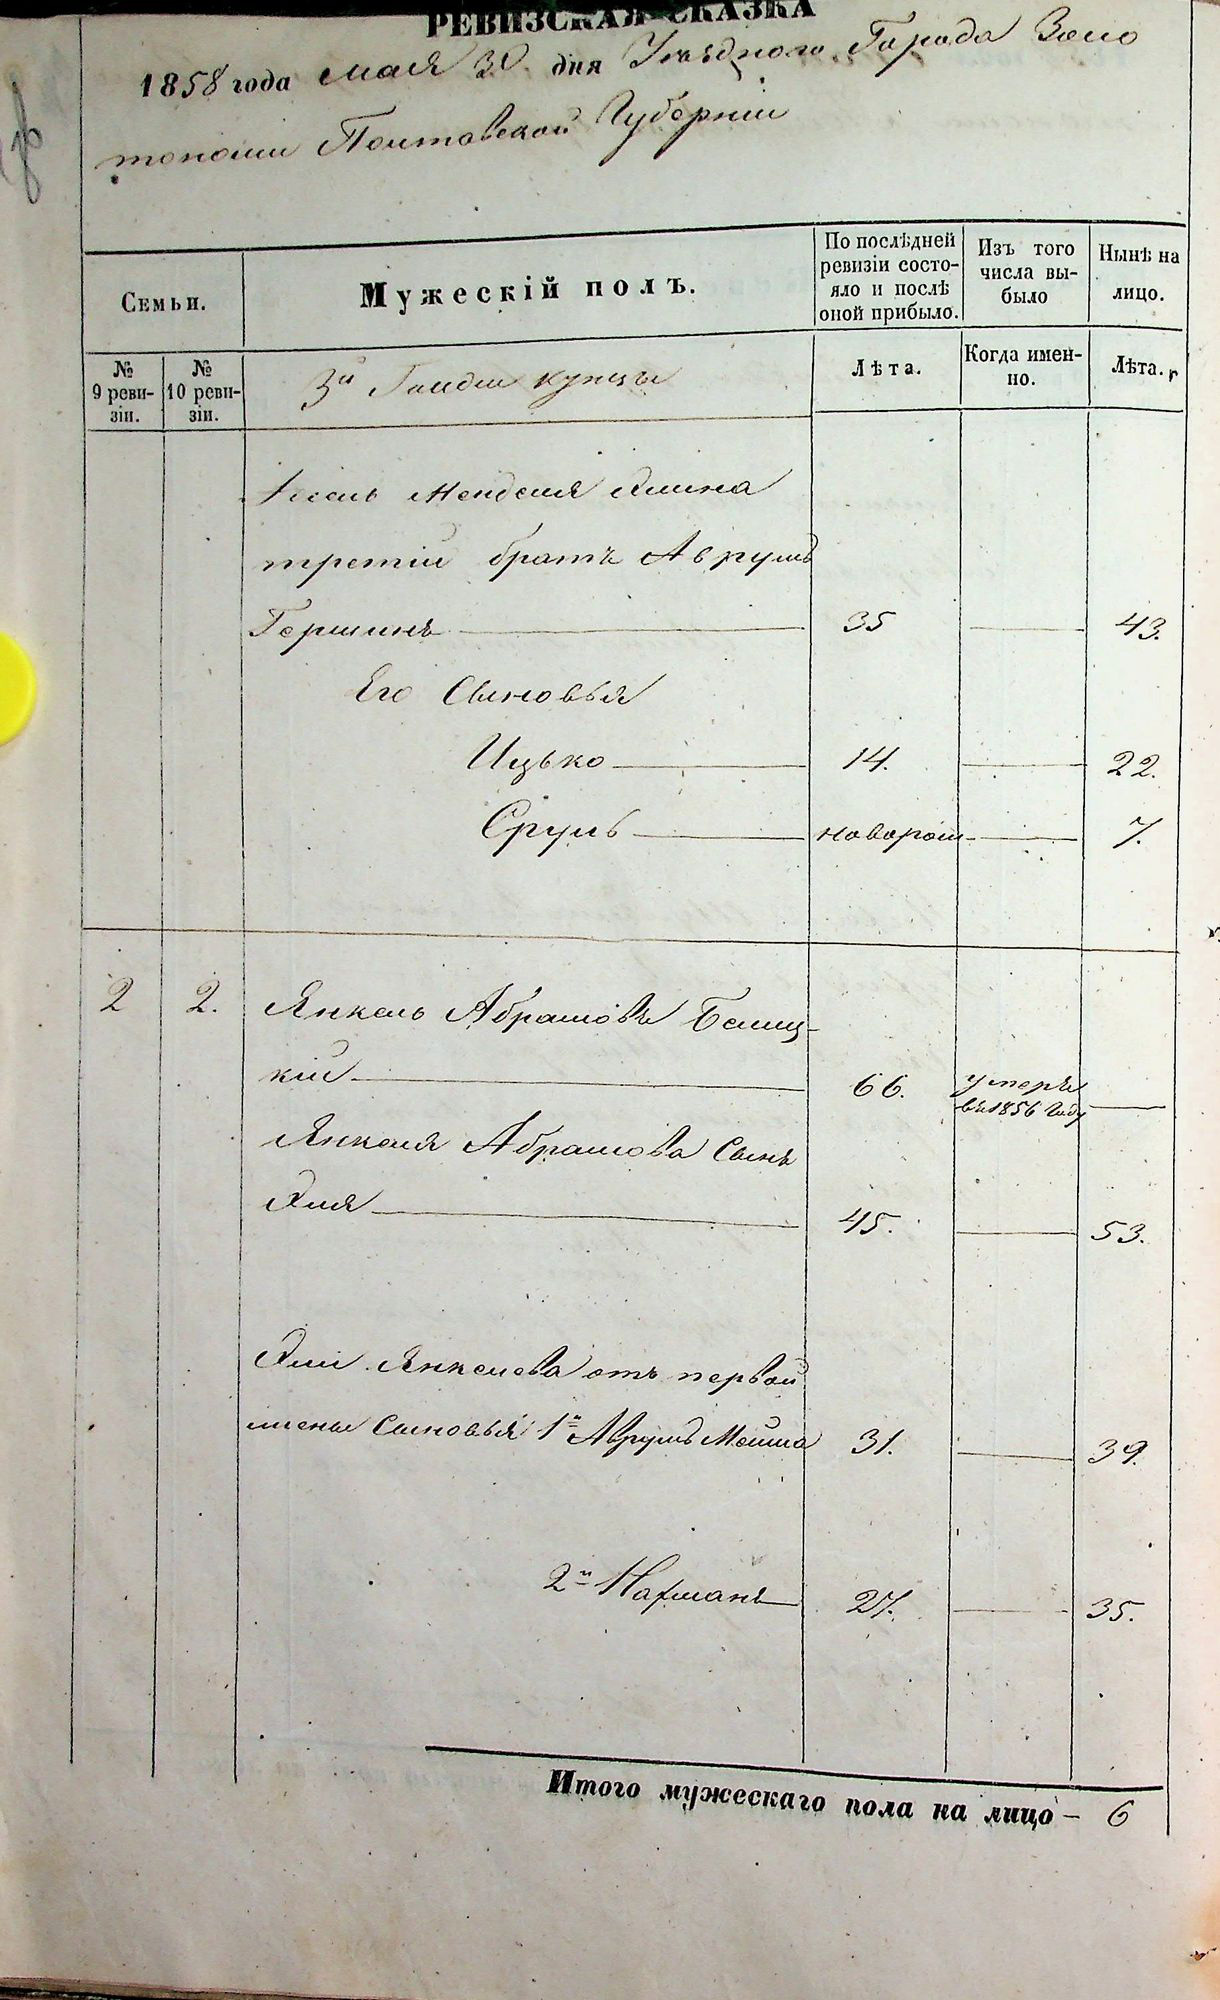 РЕВИЗСКАЯ СКАЗКА
1858 года мая 30 дня Уѣзднаго Города Золо
тоноши Полтавской Губерніи
Семьи.
Мужескій полъ.
По послѣдней
ревизіи состо-
яло и послѣ
оной прибыло.
Изъ того
числа вы-
было
Нынѣ на
лицо.
№
9 реви-
зіи.
№
10 реви-
зіи.
3й Гилдіи купцы
Лѣта.
Когда имен-
но.
Лѣта.
Менделя
третій братъ Аврумъ
Гершинъ 35 43.
Его Сыновья
Ицько 14. 22.
Сруль новорож 7.
2 2. Янкель Абрамовъ Белиц-
кій 66. умеръ
въ 1856 Году
Янкеля Абрамова Сынъ
Эля 45. 53.
Эли Янкелева отъ первой
жены Сыновья 1й Аврумъ Мойша 31. 39.
2й Нахманъ 27. 35.
Итого мужескаго пола на лицо - 6